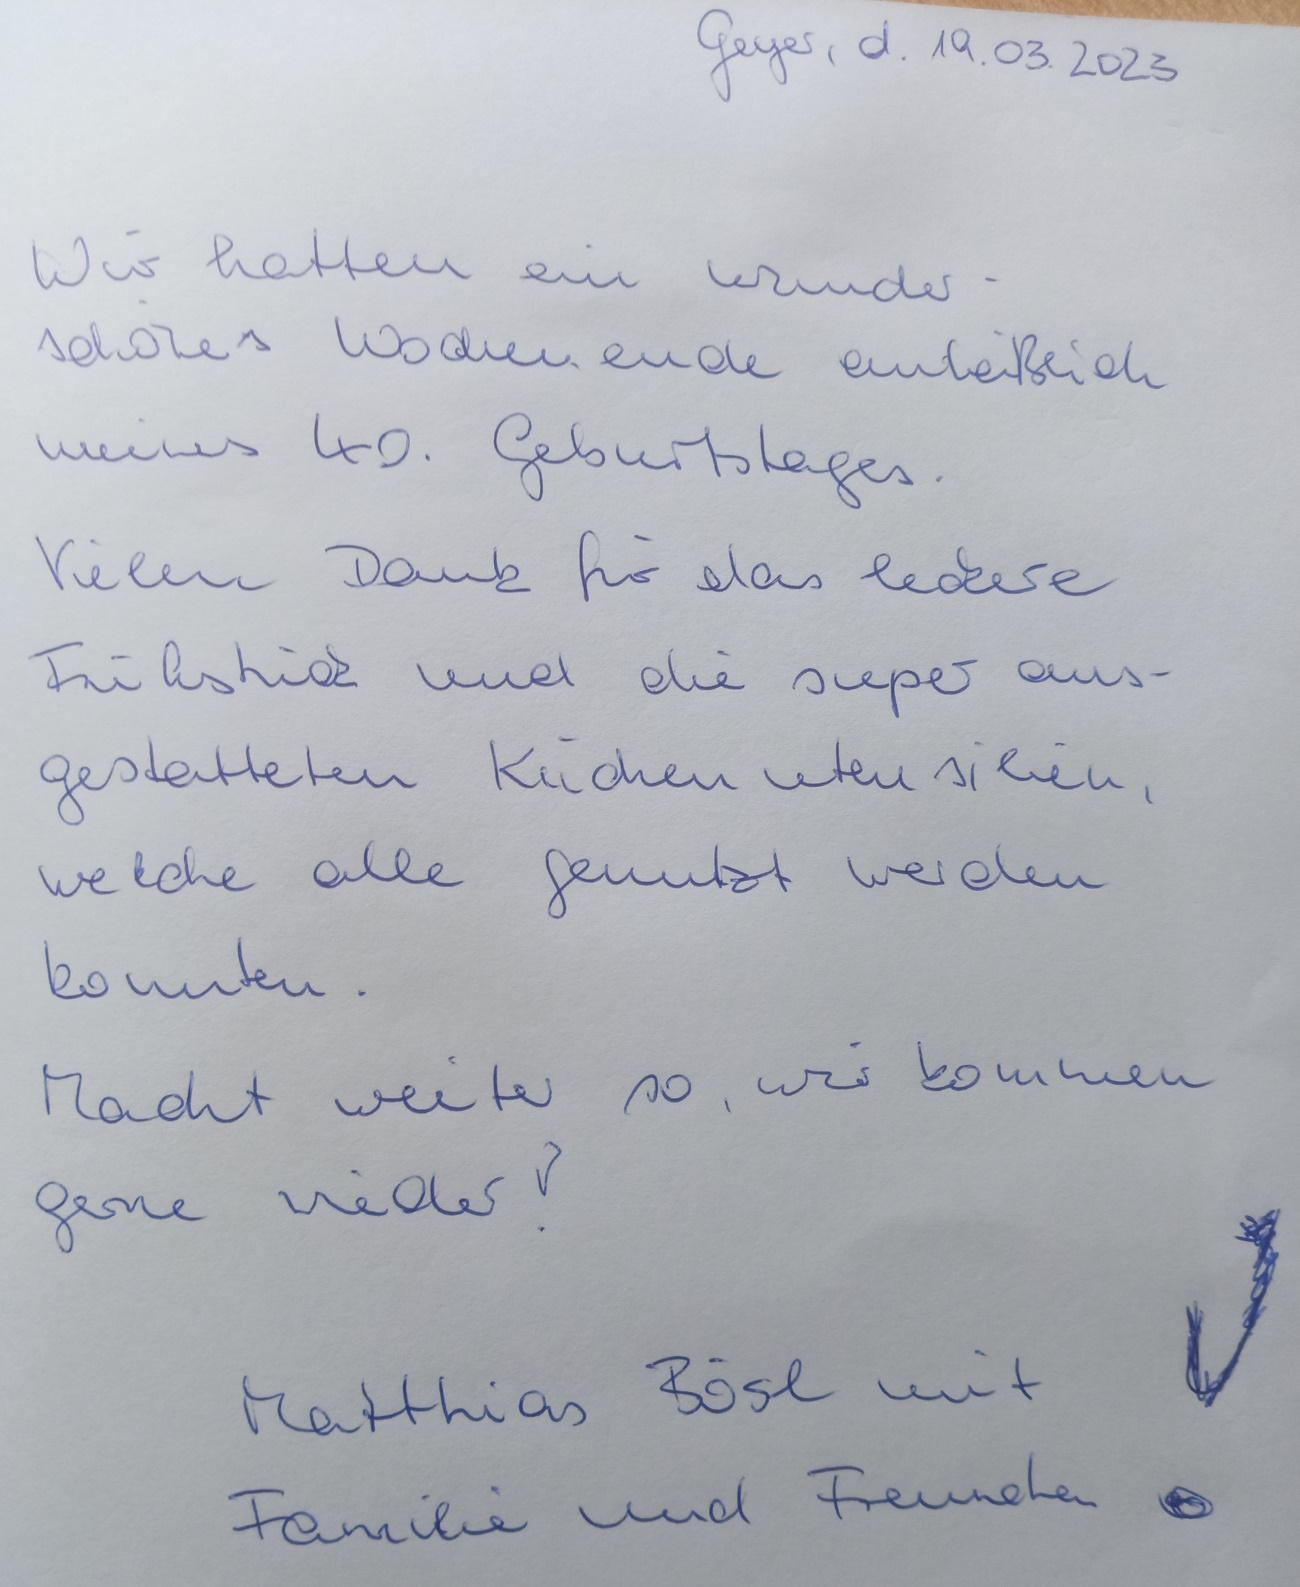 Geyer, d. 19.03.2023
Wir hatten ein wunder-
schönes Wochenende anläßlich
meines 40. Geburtstages.
Vielen Dank für das leckere
Frühstück und die super aus-
gestatteten Küchenutensilien,
welche alle genutzt werden
konnten.
Macht weiter so, wir kommen
gerne wieder!
Matthias Bösl mit
Familie und Freunden !